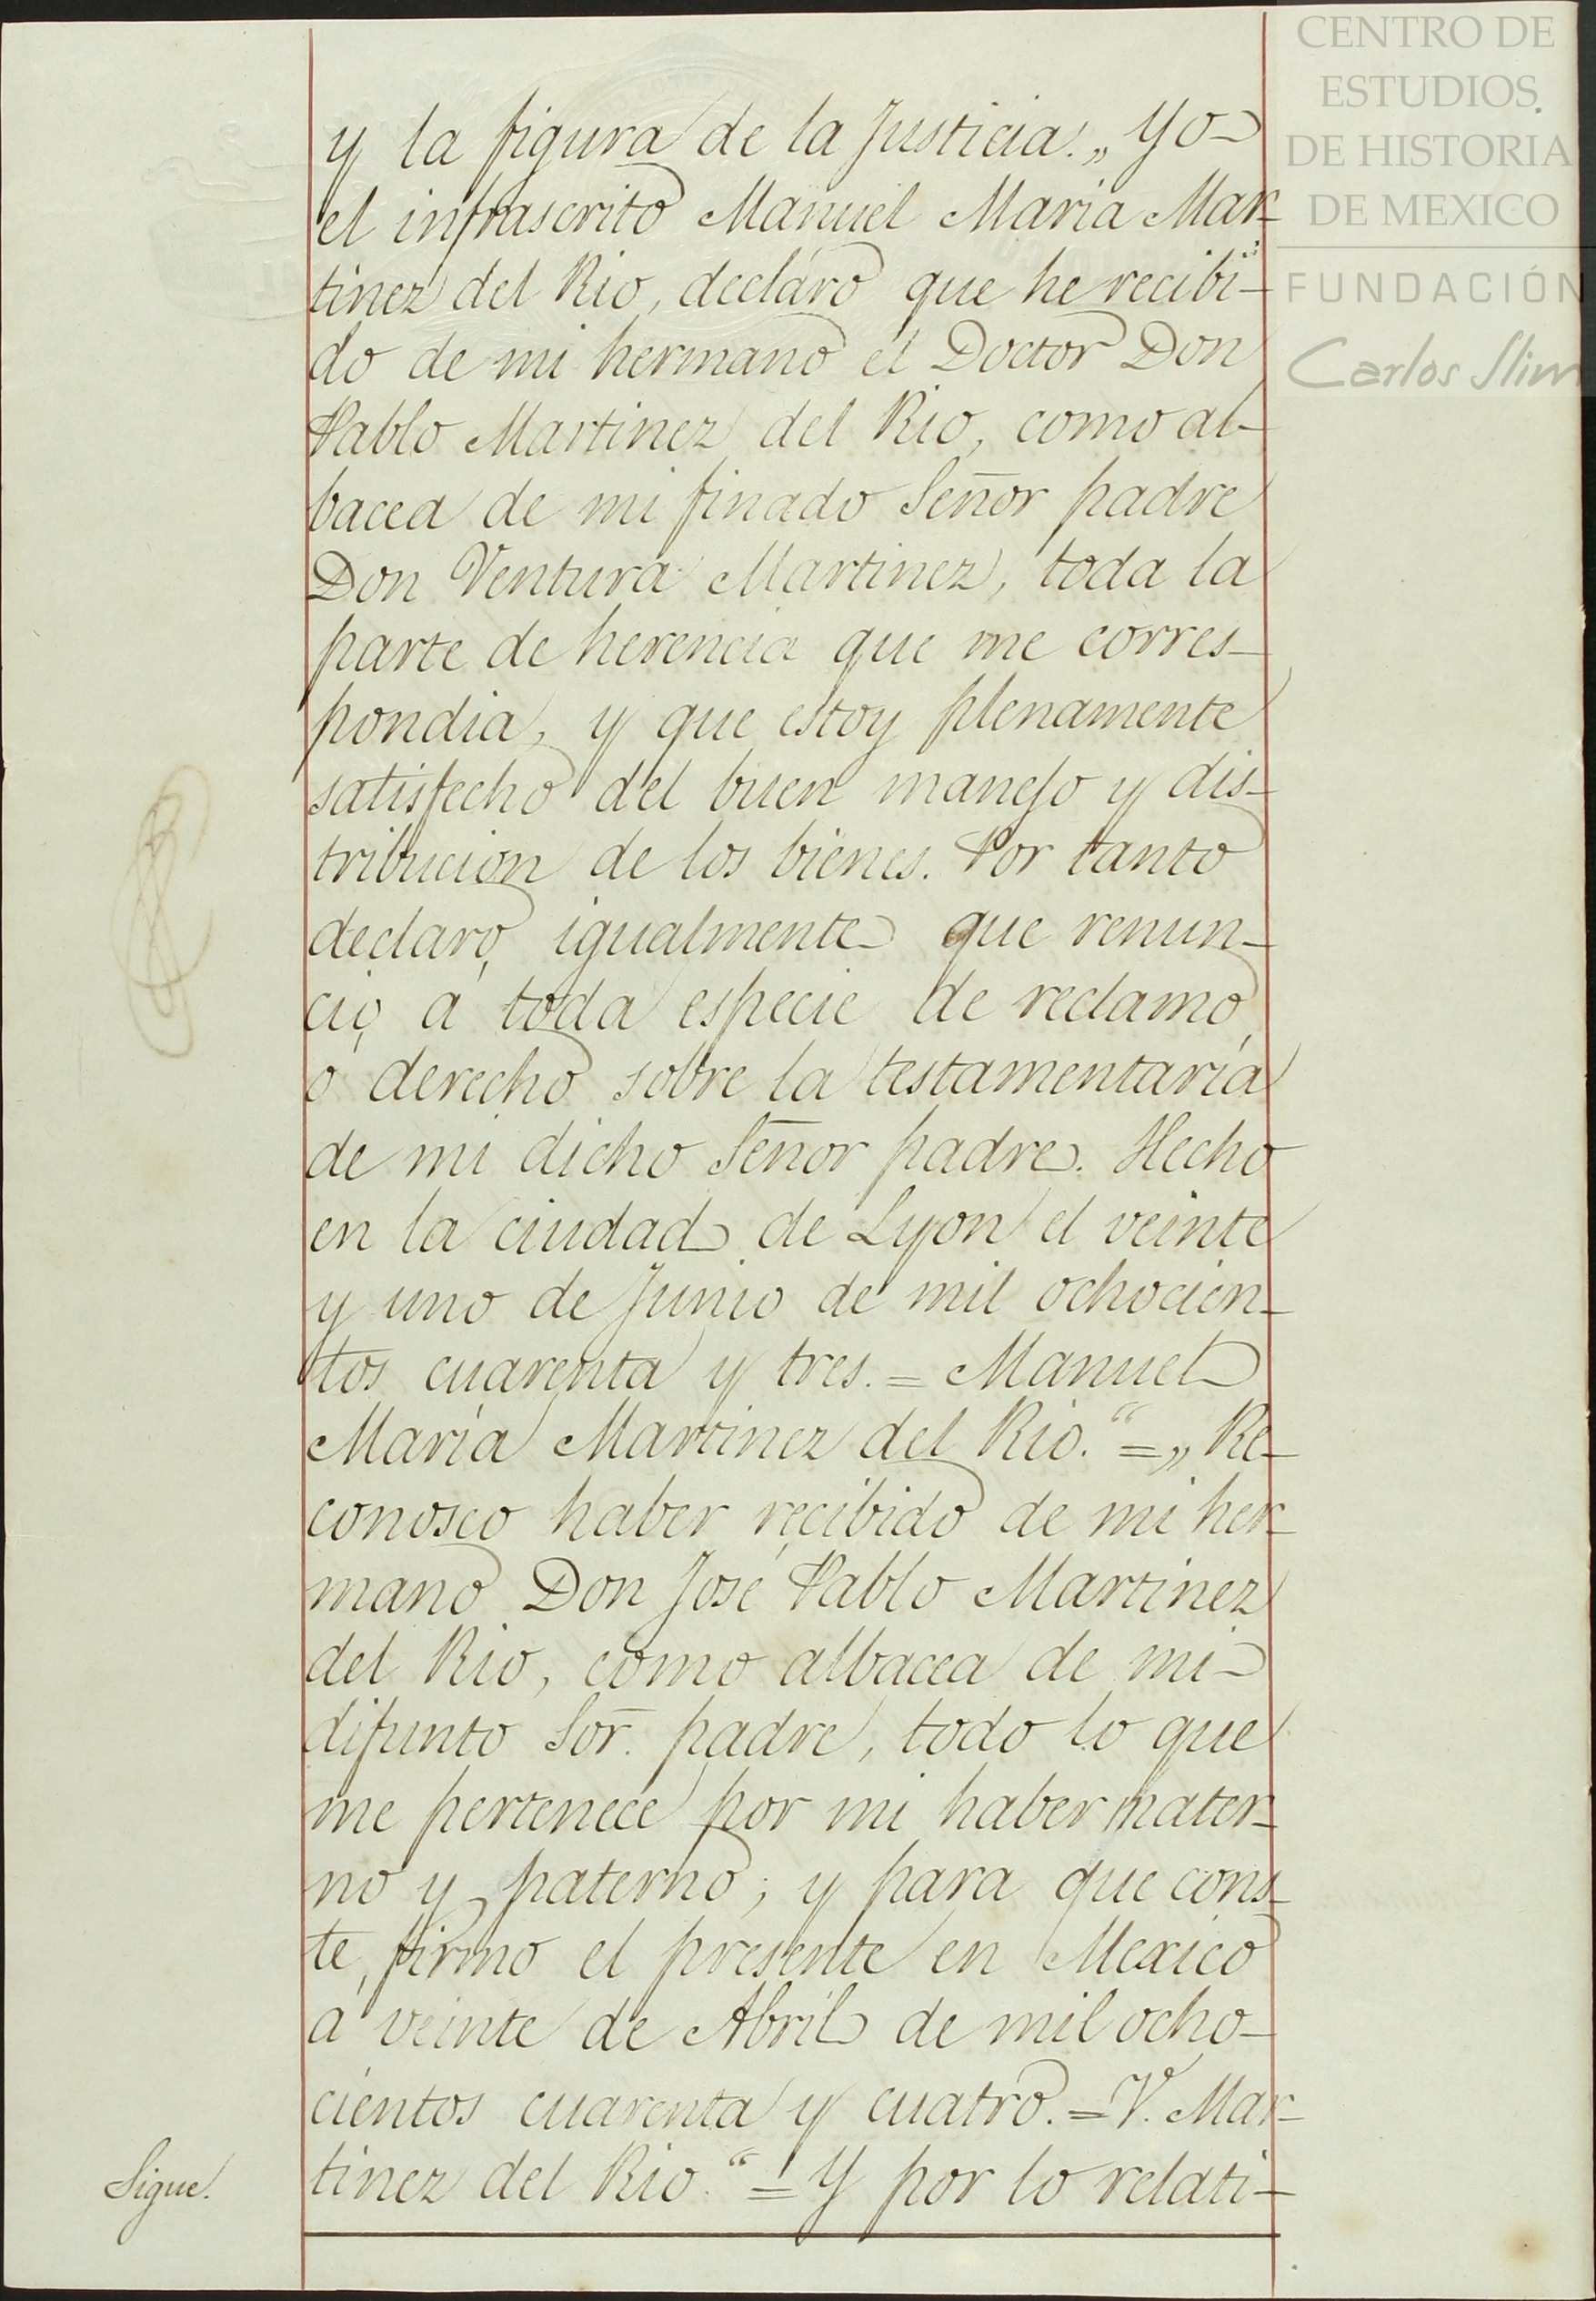 CENTRO DE
ESTUDIOS
DE HISTORIA
DE MEXICO
FUNDACIÓN
Carlos Slim
y la figura de la Justicia. „Yo
el infrascrito Manuel Maria Mar-
tinez del Rio, declaro que he recibi-
do de mi hermano el Doctor Don
Pablo Martinez del Rio, como al-
bacea de mi finado Señor padre
Don Ventura Martinez, toda la
parte de herencia que me corres-
pondia, y que estoy plenamente
satisfecho del buen manejo y dis-
tribucion de los bienes. Por tanto
declaro, igualmente que renun-
cio, á toda especie de reclamo,
ó derecho sobre la testamentaría
de mi dicho Señor padre. Hecho
en la ciudad de Lyon el veinte
y uno de Junio de mil ochocien-
tos cuarenta y tres. = Manuel
María Martinez del Rio.“ = „Re-
conosco haber recibido de mi her-
mano Don José Pablo Martinez
del Rio, como albacea de mi
difunto Sor. padre, todo lo que
me pertenece por mi haber mater-
no y paterno; y para que cons-
te, firmo el presente en Mexico
á veinte de Abril de mil ocho-
cientos cuarenta y cuatro. = V. Mar-
tinez del Rio.“ = Y por lo relati-
Sigue.